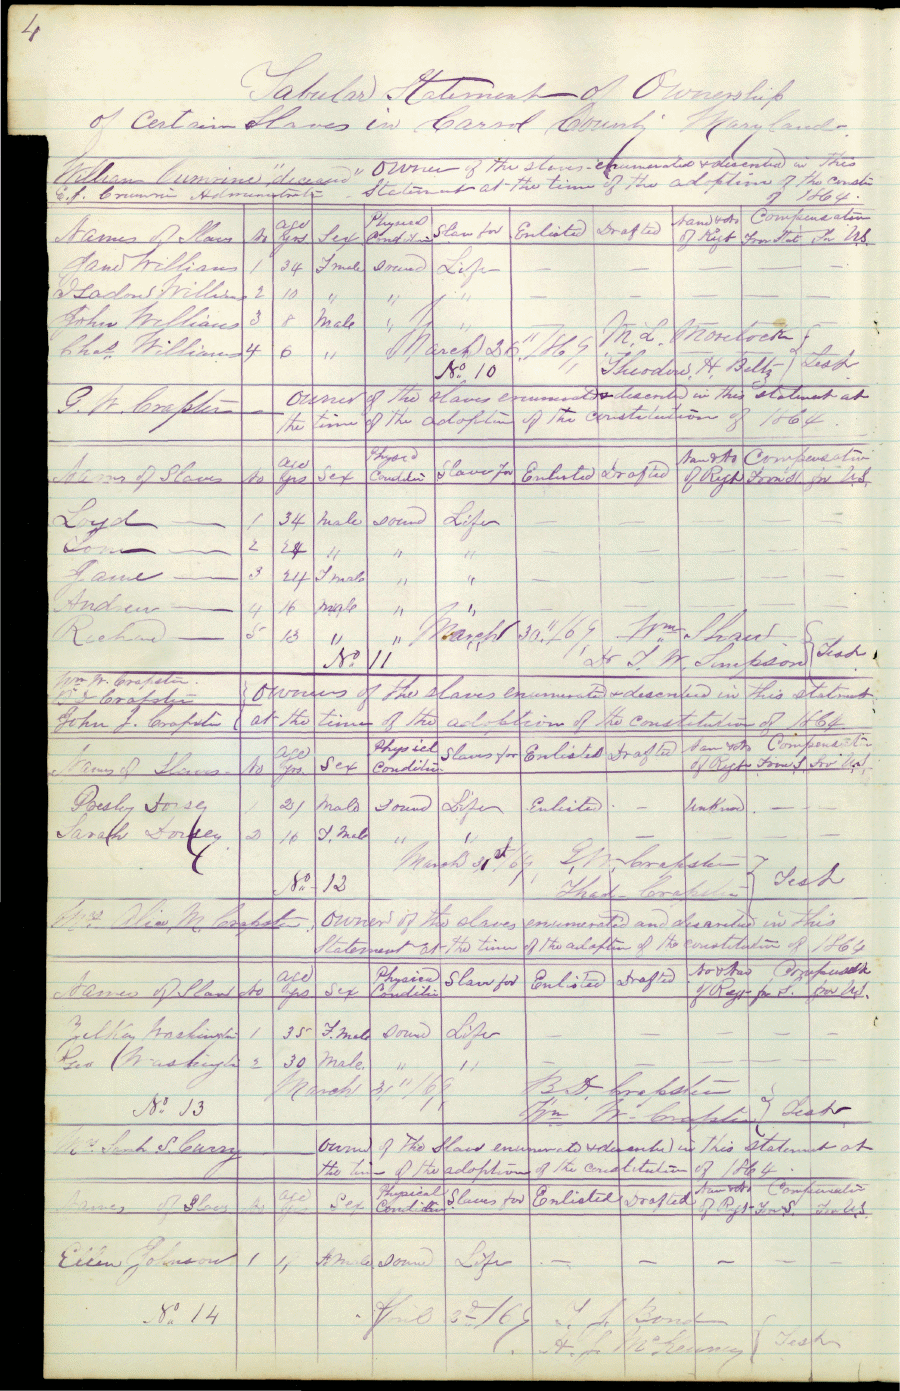 4
Tabular Statement of Ownership
of Certain Slaves in Carrol County Maryland.
William Crumrine "deceased" Owner of the slaves enumerated & described in this
Administrator Statement at the time of the adoption of the consti
of 1864.
Names of Slaves No age yrs Sex Physical Condition Slaves for Enlisted Drafted Name & No of Regt Compensation From Stat Fr U.S.
Jane Williams 1 34 F male sound Life — — — — —
Isadore Williams 2 10 " " " — — — — —
John Williams 3 8 Male " "
Chas. Williams 4 6 " March 26" /69 M. L. Morelock
No 10 Theodore H. Beltz Test
G. W. Crapster — Owner of the slaves enumerated & described in this statement at
the time of the adoption of the constitution of 1864.
Names of Slaves No age yrs Sex Physicl Condition Slaves for Enlisted Drafted Nam & No of Regt Compensation From St. for U.S.
Loyd — 1 34 Male sound Life — — — — —
Tom — 2 24 " " " — — — — —
Jane — 3 24 F male " " — — — — —
Andrew — 4 16 male " "
Richard — 5 13 " " March 30" /69 Wm Shaw
No 11 Dr F. W. Simpson Test
Wm W. Crapster
Crapster Owners of the slaves enumerated & described in this statement
John J. Crapster at the time of the adoption of the constitution of 1864
Names of Slaves No age Yrs. Sex Physicl Condition Slaves for Enlisted Drafted Nam & No of Regt Compensatn From S. For U.S.
Presby Dorsey 1 21 Male Sound Life Enlisted — unknow — —
Sarah Dorsey 2 10 F. Male " " — — —
March 31st /69 G. W. Crapster
No 12 Thad Crapster Test
Mrs Alice M. Crapster. Owner of the slaves enumerated and described in this
Statement at the time of the adoption of the constitution of 1864
Names of Slaves No age yrs Sex Physical Conditin Slaves for Enlisted Drafted No & Nam of Regt Compensatn for S. For U.S.
Washington 1 35 F. Male sound Life — — — — —
Geo Washington 2 30 Male. " " — — — —
March 31" /69 B. D. Crapster
No 13 Wm W. Crapster Test
Sarah S. Curry — Owner of the Slave enumerated & described in this Statement at
the time of the adoption of the constitution of 1864.
Names of Slaves No age yrs Sex Physical Condition Slaves for Enlisted Drafted Nam & No of Regt Compensation From S. For U.S.
Ellen Johnson 1 Female sound Life — — — — —
No 14 April 3d /69 T. J. Bond
Test